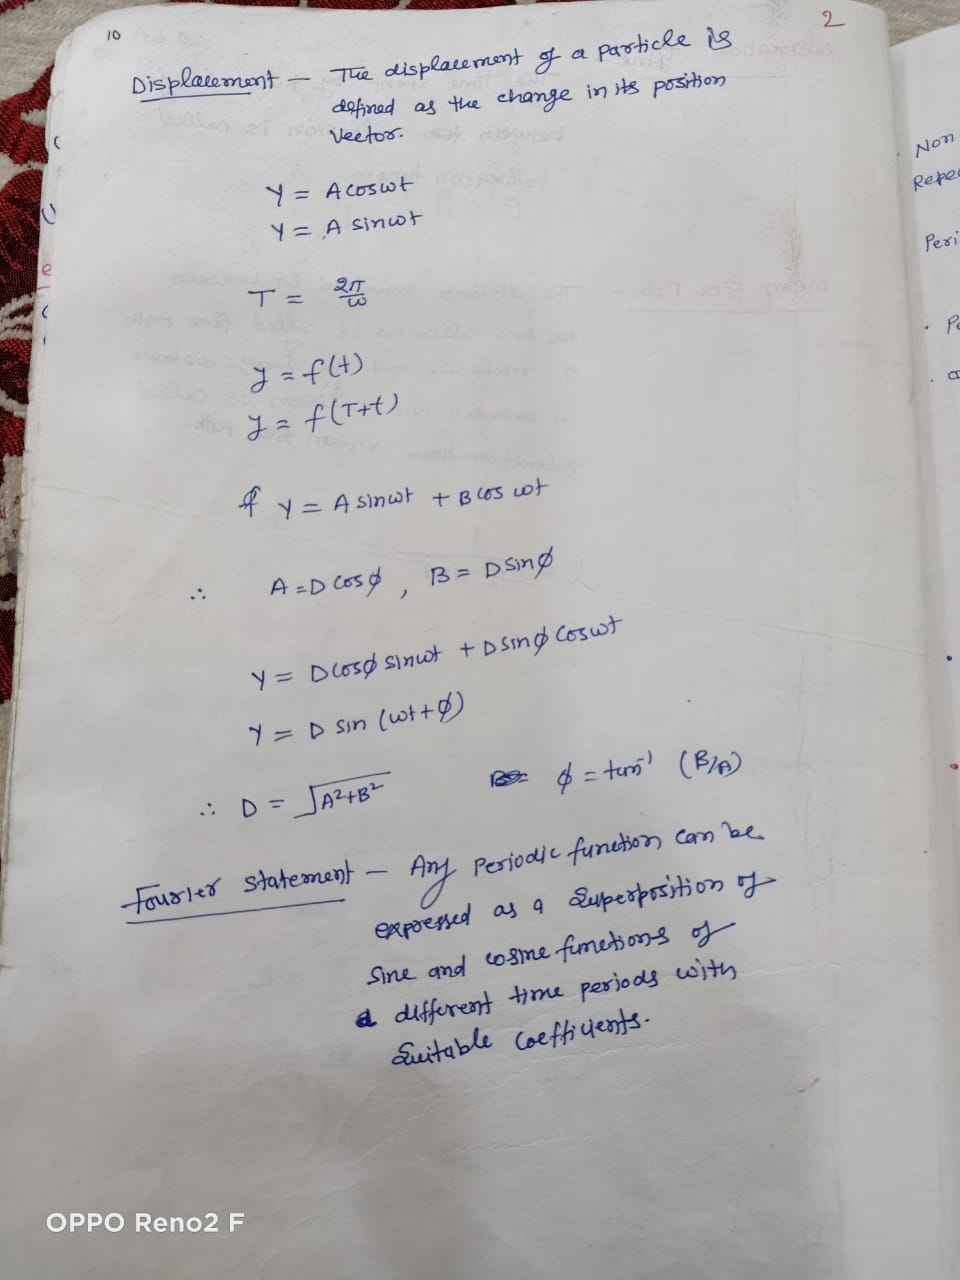 10
2
Displacement — The displacement of a particle is
defined as the change in its position
Vector.
Y = A cos ωt
Y = A sin ωt
T = 2π/ω
y = f(t)
y = f(T+t)
If Y = A sin ωt + B cos ωt
∴ A = D cos φ, B = D sin φ
Y = D cos φ sin ωt + D sin φ cos ωt
Y = D sin (ωt + φ)
∴ D = √A²+B² φ = tan⁻¹ (B/A)
Fourier statement — Any Periodic function can be
expressed as a Superposition of
Sine and cosine functions of
different time periods with
Suitable coefficients.
Non
Repe
Peri
OPPO Reno2 F